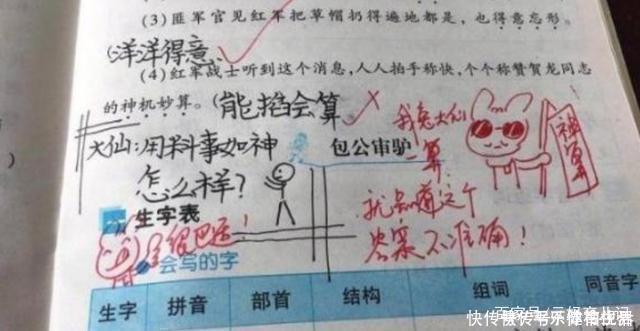 (3)匪军官见红军把草帽扔得遍地都是,也得意忘形。
(洋洋得意)
(4)红军战士听到这个消息,人人拍手称快,个个称赞贺龙同志
的神机妙算。(能掐会算)
我兔大仙
一算,
就知道这个
答案不准确!
神算
大仙:用料事如神
怎么样?
包公审驴
生字表
会写的字
生字 拼音 部首 结构 组词 同音字